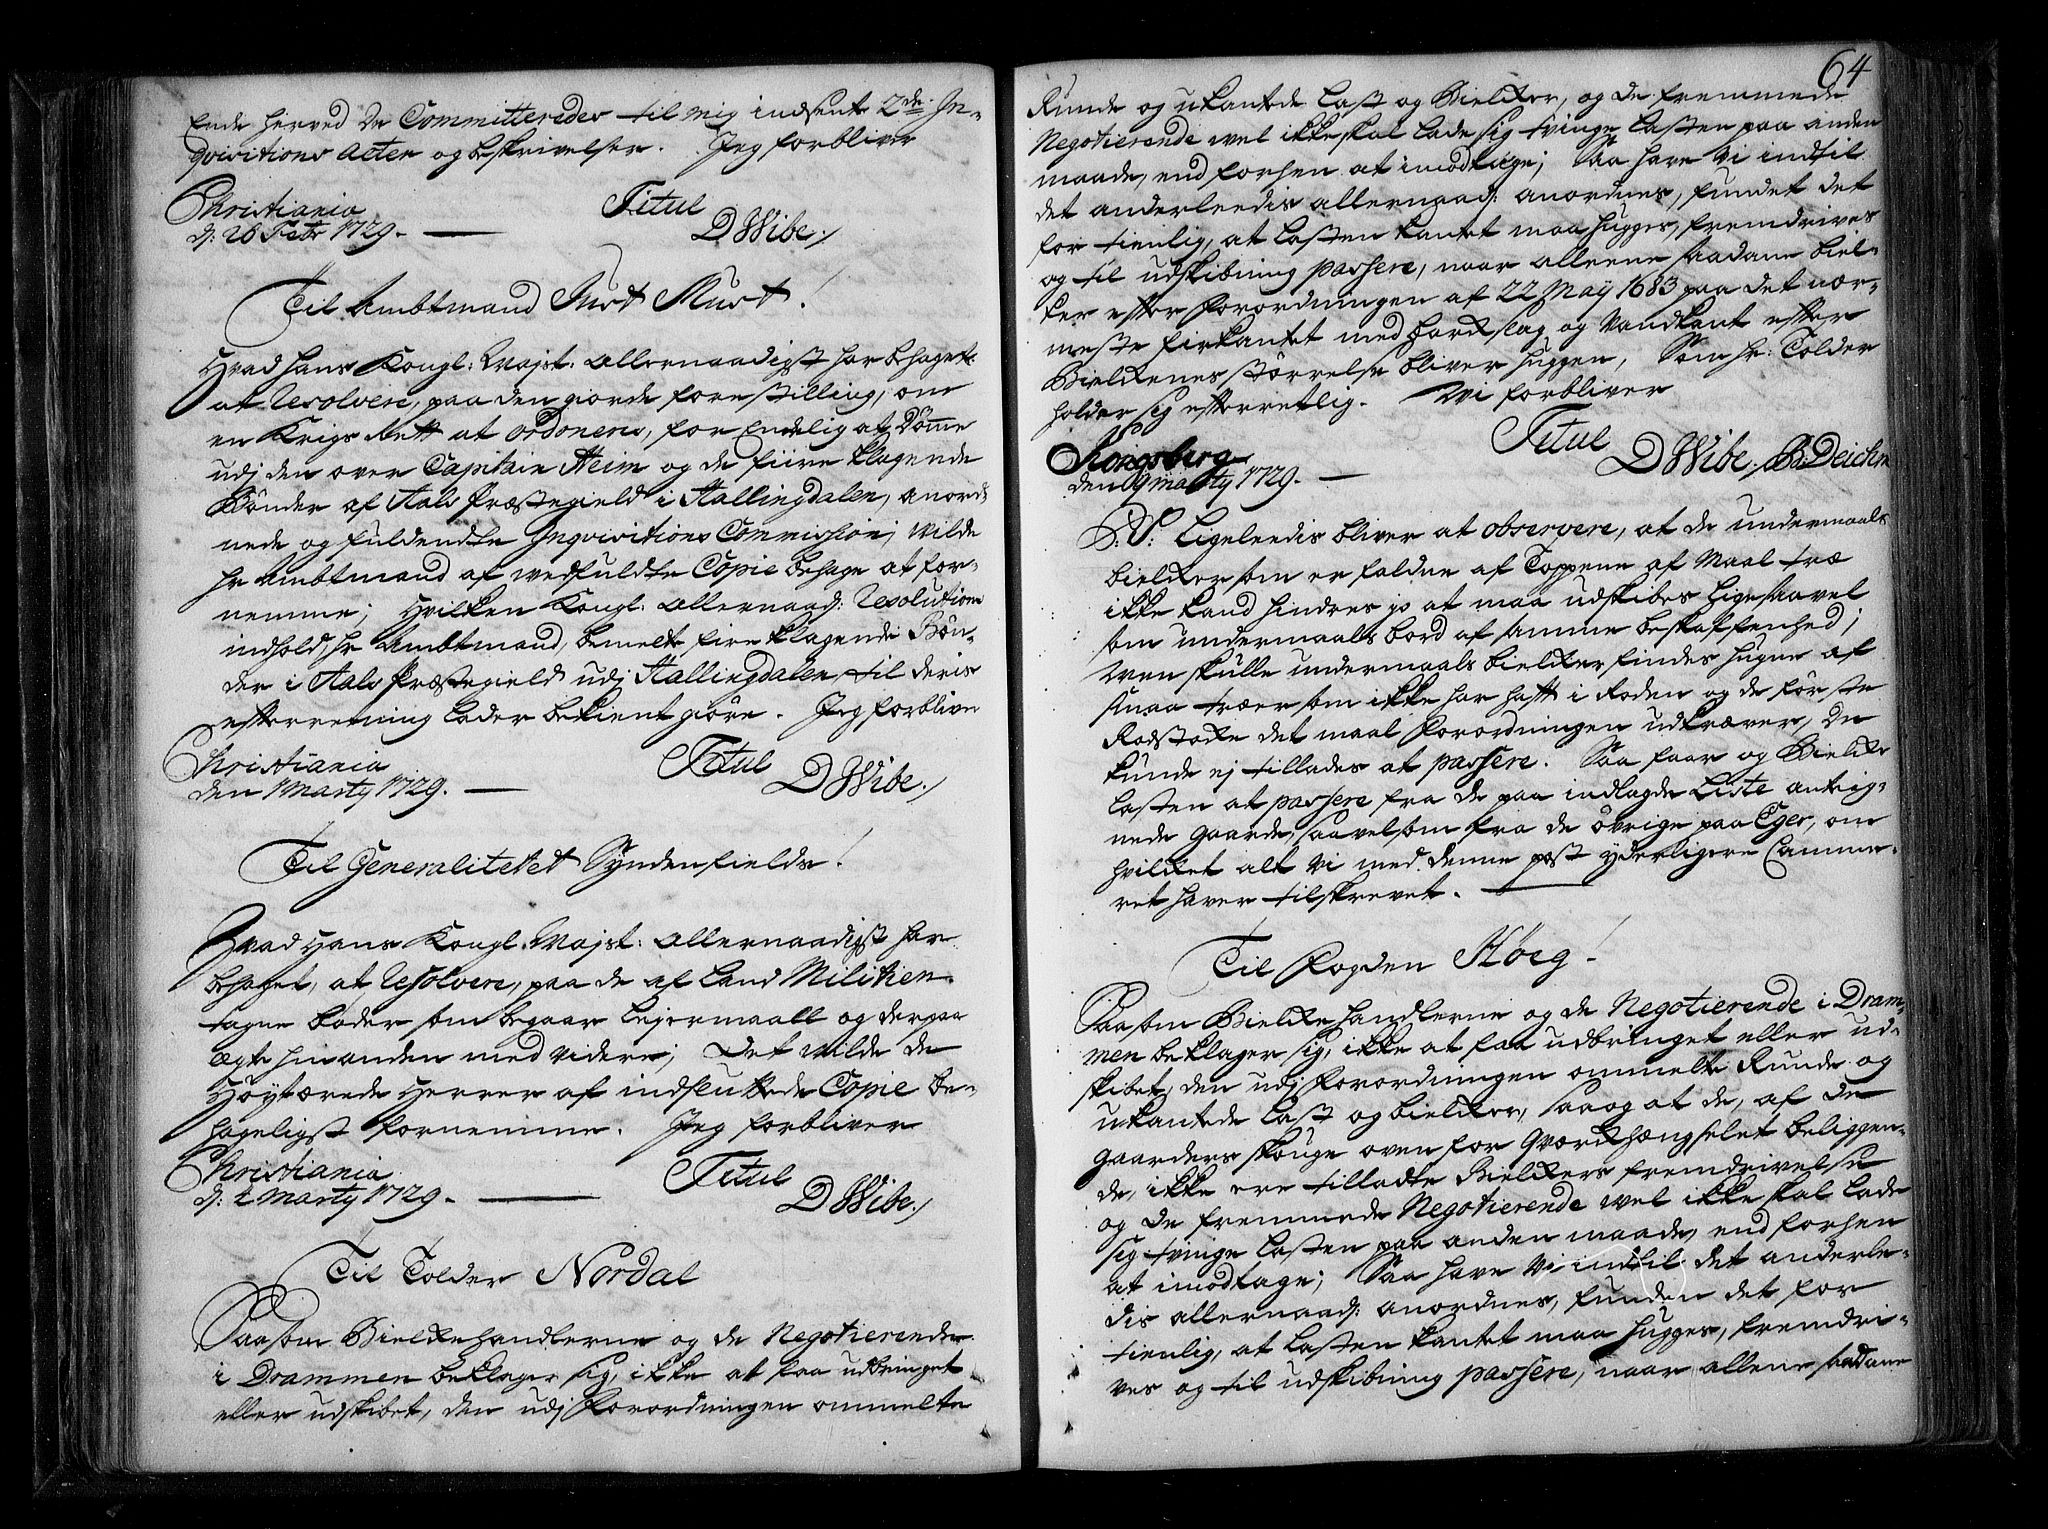 Ende herved De Committeredes til mig indsent 2de In-
qvisitions Acten og beskrivelser. Jeg forbliver
Christiania
d: 26 Febr 1729. Titul
D Wibe./
Til Ambtmand Just Must!
Hvad hans Kongl: Mayst: allernaadigst har behaget
at Resolvere, paa den giorde forestilling, om
en Krigs Rett at ordoneres, for Endelig at Dømme
udj den over Capitain Heim og de fiire klagende
Bønder af Aals Præstegield i Hallingdalen, anord-
nede og fuldendte Inqvisitions Commission, Wilde
hr Ambtmand af wedfuldte Copie behage at for-
nemme; Hvilken Kongl: allernaad: Resolutions
indhold hr Ambtmand, bemelte fire klagende Bøn-
der i Aals Præstegield udj Hallingdalen, til deris
efterretning lader bekient giøre. Jeg forbliver
Christiania
den 1 Marty 1729. Titul
D Wibe./
Til Generalitetet Syndenfields!
Hvad Hans Kongl: Mayst: allernaadigst har
behaget, at Resolvere, paa de af Land Militien
tagne bøder som begaar Lejermaall og derpaa
ægte hinanden med Videre; Det wilde de
Høytærede Herrer af indsluttede Copie be-
hageligst fornemme. Jeg forbliver
Christiania
d: 2 Marty 1729. Titul
D Wibe./
Til Tolder Nordal
Saasom Bielkehandlerne og de Negotierende
i Drammen beklager sig, ikke at faa udbringet
eller udskibet, den udj Forordningen ommelte
64
Runde og ukantede Last og Bielker, og de fremmede
Negotierende wel ikke skal lade sig tvinge Lasten paa anden
maade, end forhen at imodtage; Saa have Vi indtil
det anderleedis allernaad: anordnes, fundet det
for tienlig, at Lasten kantet maa hugges, fremdrives
og til udskibning passere, naar alleene saadane biel-
ker efter Forordningen af 22 May 1683 paa det nær-
meste firkantet med bord slag og Vandkant efter
Bielkenes størrelse bliver huggen, Som hr: Tolder
holder sig efterretlig. Wi forbliver
Titul
Kongsberg
den 9 Marty 1729. D Wibe./ B: Deichm
P.S: Ligeleedis bliver at observere, at de undermaals
bielker som er faldne af Toppene af Maal træ
ikke kand hindres jo at maa udskibes lige saavel
som undermaals bord af samme beskaffenhed;
Men skulle undermaals bielker findes hugne af
smaa træer som ikke har haft i Roden og de første
Rodstocke det maal Forordningen udkræver, De
kunde ej tillades at passere. Saa faar og Bielke
Lasten at passere fra de paa indlagde Liste anteig-
nede Gaarde, saavelsom fra de øvrige paa Eger, om
hvilket alt Vi med denne post yderligere Camme-
ret haver tilskrevet.
Til Fogden Høeg!
Saasom Bielkehandlerne og de Negotierende i Dram-
men beklager sig, ikke at faa udbringet eller ud-
skibet, den udj Forordningen ommelte Runde og
ukantede Last og bielker, saa og at de, af de
Gaarders skouge oven for Qværk hængselet beliggen-
de, ikke ere tilladte Bielkers fremdrivelse
og de fremmede Negotierende wel ikke skal lade
sig tvinge Lasten paa anden maade, end forhen
at imodtage; Saa have Vi indtil det anderlee-
dis allernaad: anordnes, funden det for
tienlig, at Lasten kantet maa hugges, fremdri-
ves og til udskibning passere, naar allene saadane